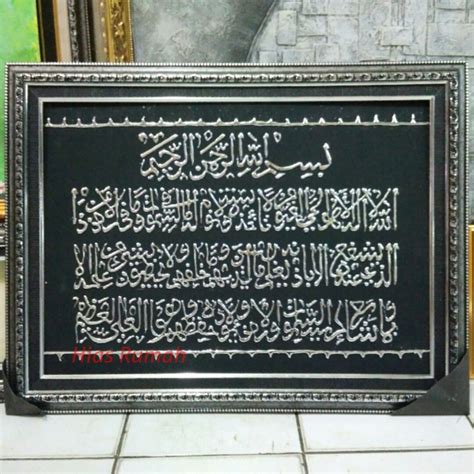 بسم الله الرحمن الرحيم
الله لا اله الا هو الحي القيوم لا تأخذه سنة ولا نوم له ما في السموات وما في الارض من ذا
الذي يشفع عنده الا باذنه يعلم ما بين ايديهم وما خلفهم ولا يحيطون بشيء من علمه الا
بما شاء وسع كرسيه السموات والارض ولا يؤده حفظهما وهو العلي العظيم
Nias Rumah